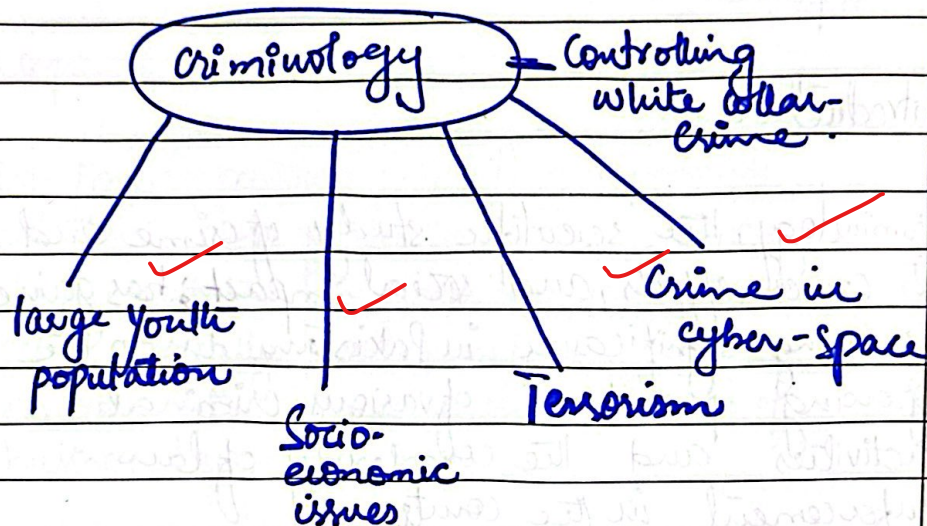 Criminology
Controlling
white collar-
crime.
large youth
population
Socio-
economic
issues
Terrorism
Crime in
cyber-space